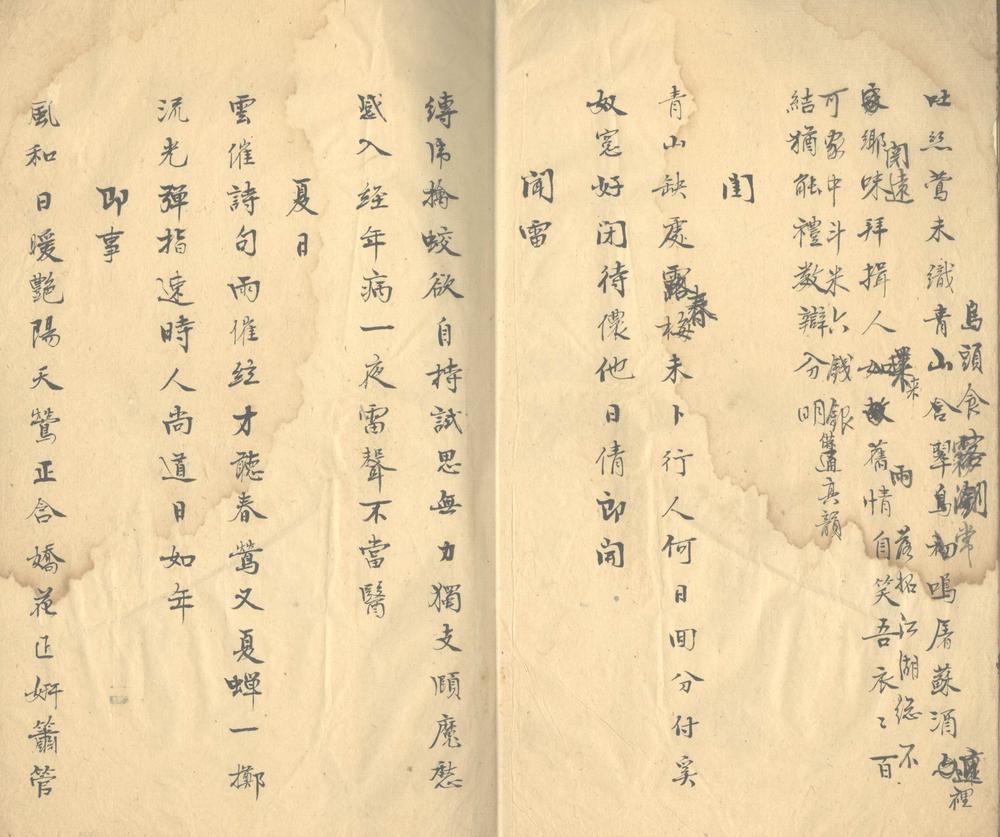 烏頭食常
吐丝莺未織青山含翠鳥 鳴屠蘇酒
裡
来雨落拓江湖总不
鄉味拜揖人 舊情自笑吾衣〻百
閑遠
可家中斗米六餞銀
結猶能禮数辯分明
真韻
閨
青山缺處露梅未卜行人何日回分付奚
春
奴窓好闭待儂他日倩郎開
聞雷
縛席擒蛟欲自持試思無力獨支頤魔愁
感入经年病一夜雷聲不當醫
夏日
雲催詩句雨催绘才聽春鶯又夏蝉一擲
流光彈指速時人尚道日如年
即事
風和日暖艷陽天鶯正含嬌花正妍簫管